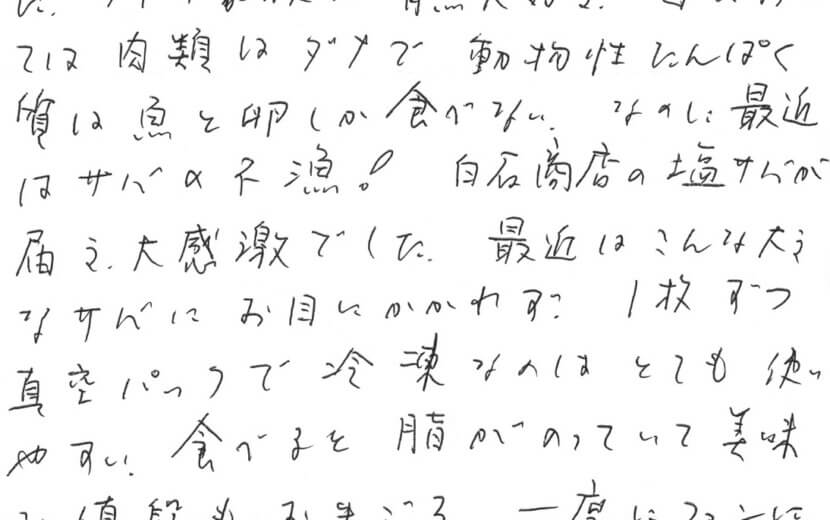 ては 肉類はダメで 動物性たんぱく
質は魚と卵しか食べない。なのに最近
はサバの不漁! 白石商店の塩サバが
届き、大感激でした。最近はこんな大き
なサバにお目にかかれず、1枚ずつ
真空パックで冷凍なのはとても使い
やすい。食べると脂がのっていて美味